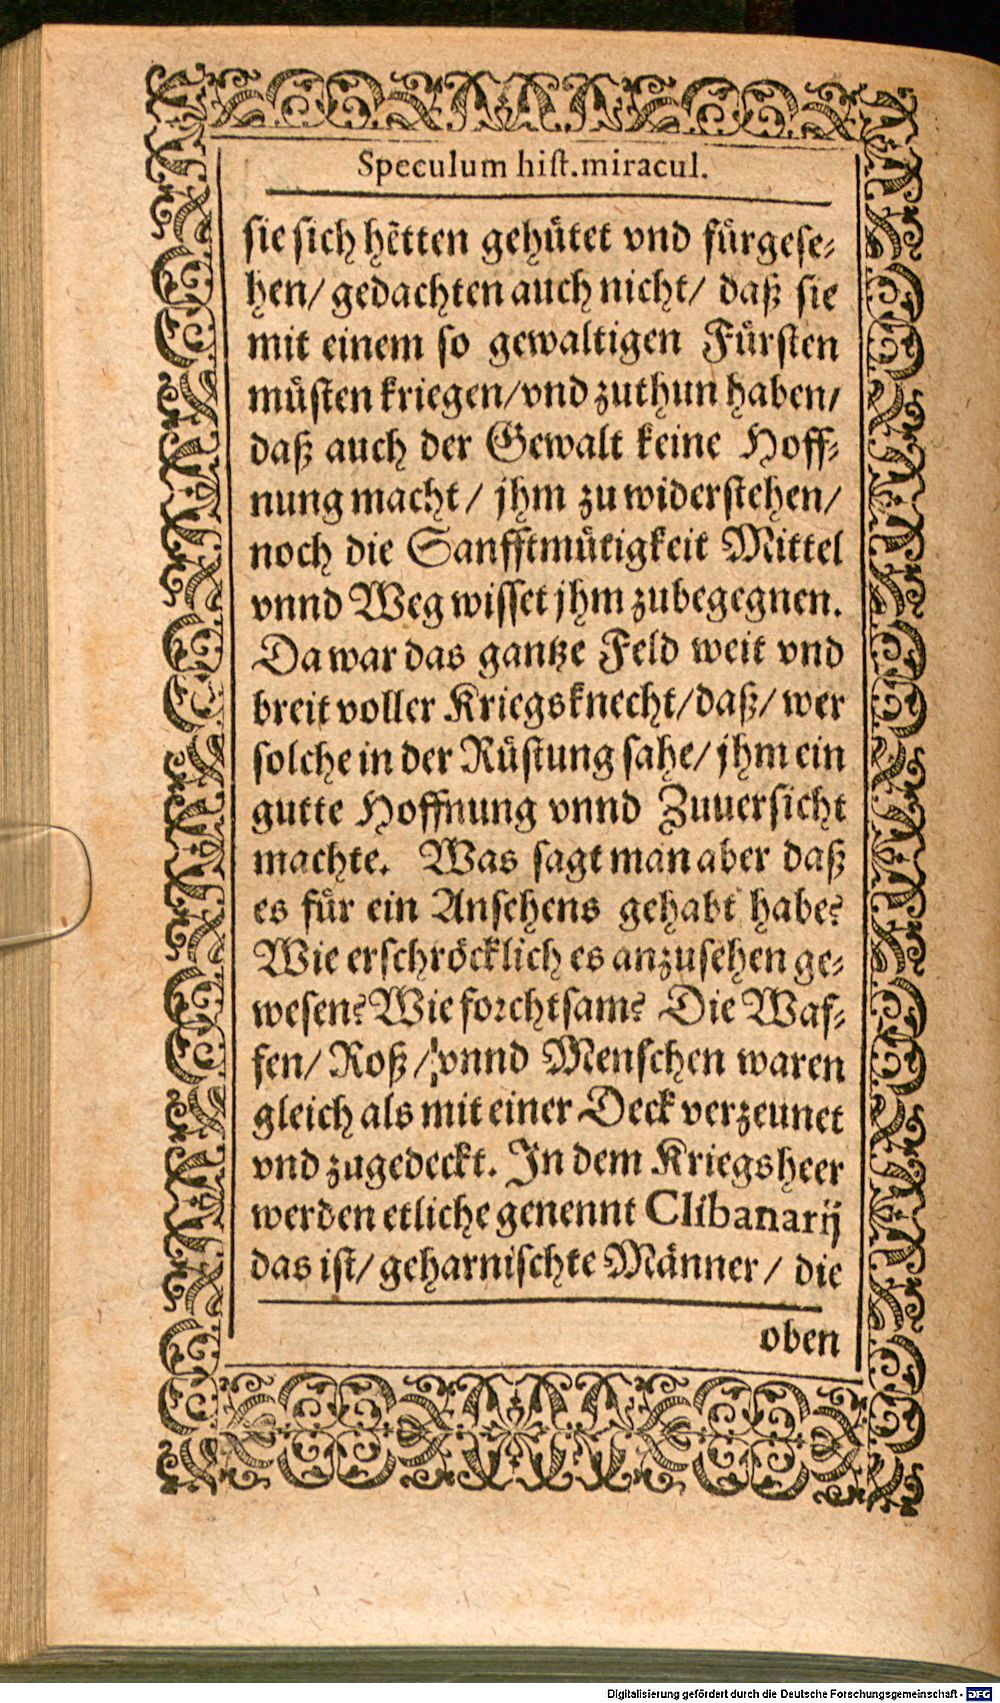 Speculum hist. miracul.
sie sich hëtten gehütet vnd fürgese⸗
hen/ gedachten auch nicht/ daß sie
mit einem so gewaltigen Fürsten
müsten kriegen/ vnd zuthun haben/
daß auch der Gewalt keine Hoff⸗
nung macht/ jhm zu widerstehen/
noch die Sanfftmütigkeit Mittel
vnnd Weg wisset jhm zubegegnen.
Da war das gantze Feld weit vnd
breit voller Kriegsknecht/ daß/ wer
solche in der Rüstung sahe/ jhm ein
gutte Hoffnung vnnd Zuuersicht
machte. Was sagt man aber daß
es für ein Ansehens gehabt habe?
Wie erschröcklich es anzusehen ge⸗
wesen? Wie forchtsam? Die Waf⸗
fen/ Roß/ vnnd Menschen waren
gleich als mit einer Deck verzeunet
vnd zugedeckt. In dem Kriegsheer
werden etliche genennt Clibanarij
das ist/ geharnischte Männer/ die
oben
Digitalisierung gefördert durch die Deutsche Forschungsgemeinschaft - DFG